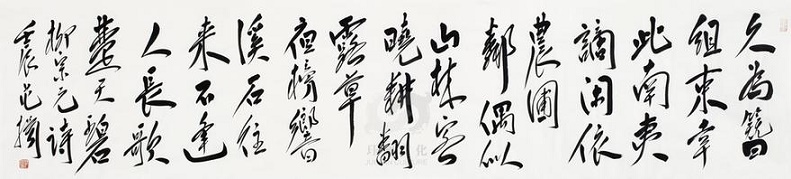 久為簪
組束幸
此南夷
謫閑依
農圃
鄰偶似
山林客
曉耕翻
露草
夜榜響
溪石往
来不逢
人長歌
楚天碧
柳宗元詩
壬辰